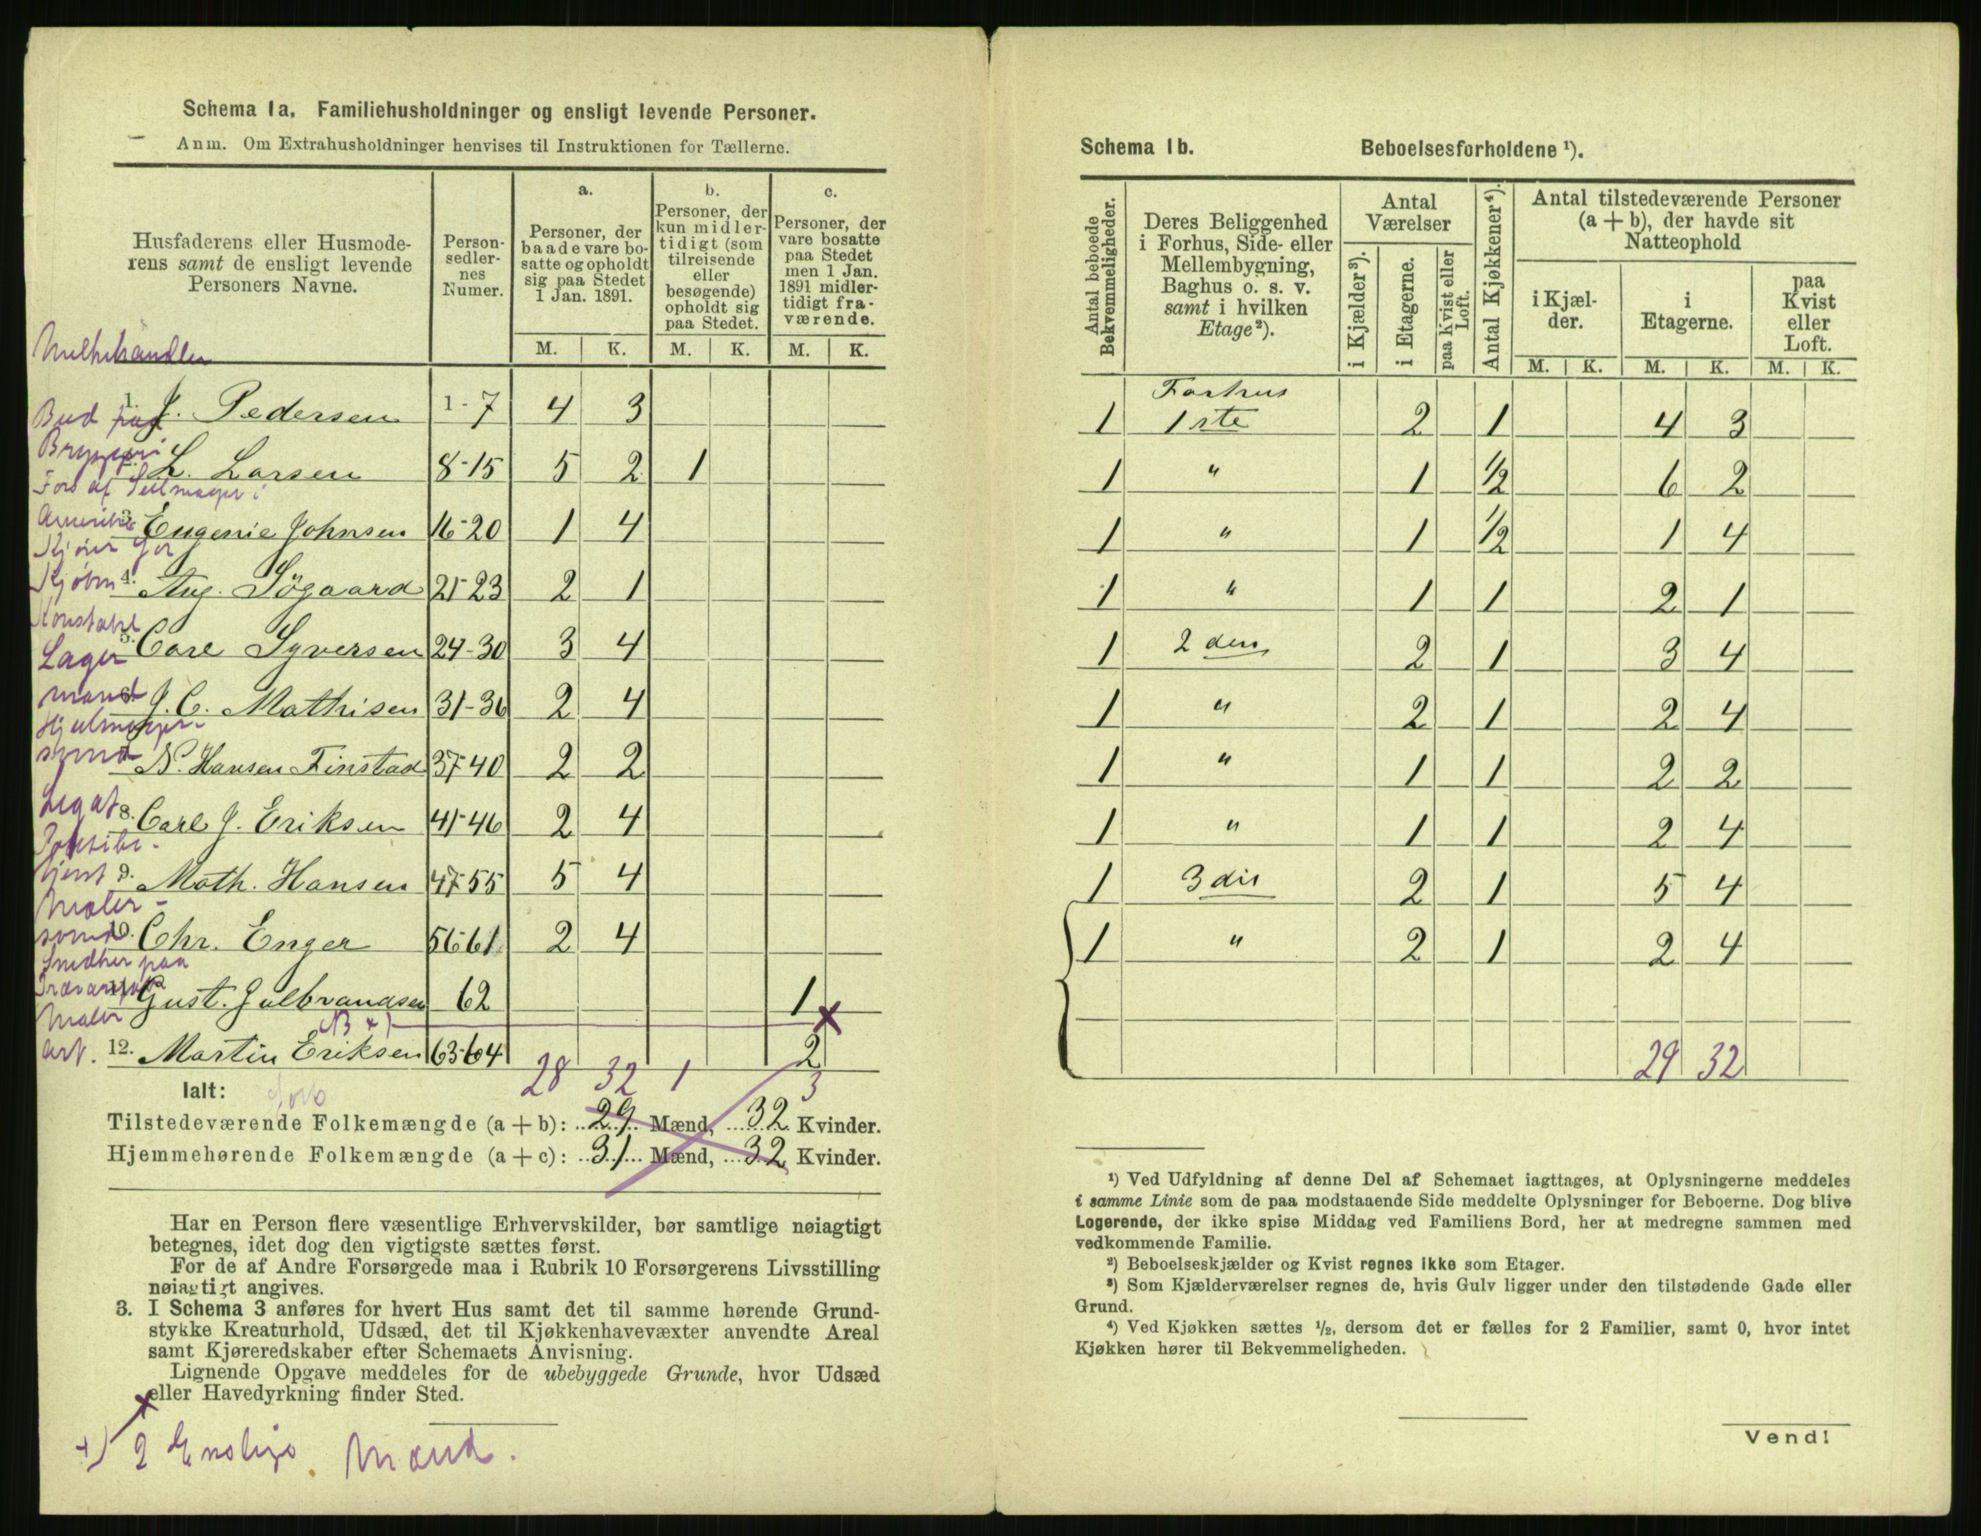 Schema 1a. Familiehusholdninger og ensligt levende Personer.
Anm. Om Extrahusholdninger henvises til Instruktionen for Tællerne.
Husfaderens eller Husmode-
rens samt de ensligt levende
Personers Navne.
Person-
sedler-
nes
Numer.
a.
Personer, der
baade vare bo-
satte og opholdt
sig paa Stedet
1 Jan. 1891.
b.
Personer, der
kun midler-
tidigt (som
tilreisende
eller
besøgende)
opholdt sig
paa Stedet.
c.
Personer, der
vare bosatte
paa Stedet
men 1 Jan.
1891 midler-
tidigt fra-
værende.
M. K. M. K. M. K.
Melkehandler
1. J. Pedersen 1-7 4 3
Bud paa
Bryggeri
2. L. Larsen 8-15 5 2 1
Fors af Seilmager i
Amerika
3. Eugenie Johnsen 16-20 1 4
Kjører for
Kjøbm
4. Aug. Søgaard 21-23 2 1
Konstabel
5. Carl Syversen 24-30 3 4
Lager
mand
6. J. C. Mathisen 31-36 2 4
svend
7. N. Hansen Finstad 37-40 2 2
Legat
8. Carl J. Eriksen 41-46 2 4
9. Math. Hansen 47-55 5 4
Maler-
svend
10. Chr. Enger 56-61 2 4
Snedker paa
11. Gust. Gulbrandsen 62 1
Maler
12. Martin Eriksen 63-64 2
arb.
28 32 1 3
Ialt:
Tilstedeværende Folkemængde (a + b): 29 Mænd, 32 Kvinder.
Hjemmehørende Folkemængde (a + c): 31 Mænd, 32 Kvinder.
Har en Person flere væsentlige Erhvervskilder, bør samtlige nøiagtigt
betegnes, idet dog den vigtigste sættes først.
For de af Andre Forsørgede maa i Rubrik 10 Forsørgerens Livsstilling
nøiagtigt angives.
3. I Schema 3 anføres for hvert Hus samt det til samme hørende Grund-
stykke Kreaturhold, Udsæd, det til Kjøkkenhavevæxter anvendte Areal
samt Kjøreredskaber efter Schemaets Anvisning.
Lignende Opgave meddeles for de ubebyggede Grunde, hvor Udsæd
eller Havedyrkning finder Sted.
+) 2 Enslige Mænd.
Schema 1b. Beboelsesforholdene ¹).
Antal beboede
Bekvemmeligheder.
Deres Beliggenhed
i Forhus, Side- eller
Mellembygning,
Baghus o. s. v.
samt i hvilken
Etage ²).
Antal
Værelser
i Kjælder ³).
i Etagerne.
paa Kvist eller
Loft.
Antal Kjøkkener ⁴).
Antal tilstedeværende Personer
(a + b), der havde sit
Natteophold
i Kjæl-
der.
i
Etagerne.
paa
Kvist
eller
Loft.
M. K. M. K. M. K.
Forhus
1 1ste 2 1 4 3
1 " 1 ½ 6 2
1 " 1 ½ 1 4
1 " 1 1 2 1
1 2den 2 1 3 4
1 " 2 1 2 4
1 " 1 1 2 2
1 " 1 1 2 4
1 3die 2 1 5 4
1 " 2 1 2 4
29 32
¹) Ved Udfyldning af denne Del af Schemaet iagttages, at Oplysningerne meddeles
i samme Linie som de paa modstaaende Side meddelte Oplysninger for Beboerne. Dog blive
Logerende, der ikke spise Middag ved Familiens Bord, her at medregne sammen med
vedkommende Familie.
²) Beboelseskjælder og Kvist regnes ikke som Etager.
³) Som Kjælderværelser regnes de, hvis Gulv ligger under den tilstødende Gade eller
Grund.
⁴) Ved Kjøkken sættes ½, dersom det er fælles for 2 Familier, samt 0, hvor intet
Kjøkken hører til Bekvemmeligheden.
Vend!